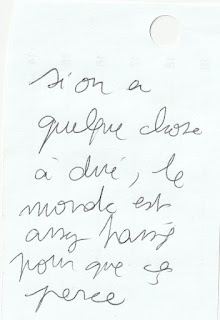 si on a
quelque chose
à dire, le
monde est
assez
pour que ça
perce